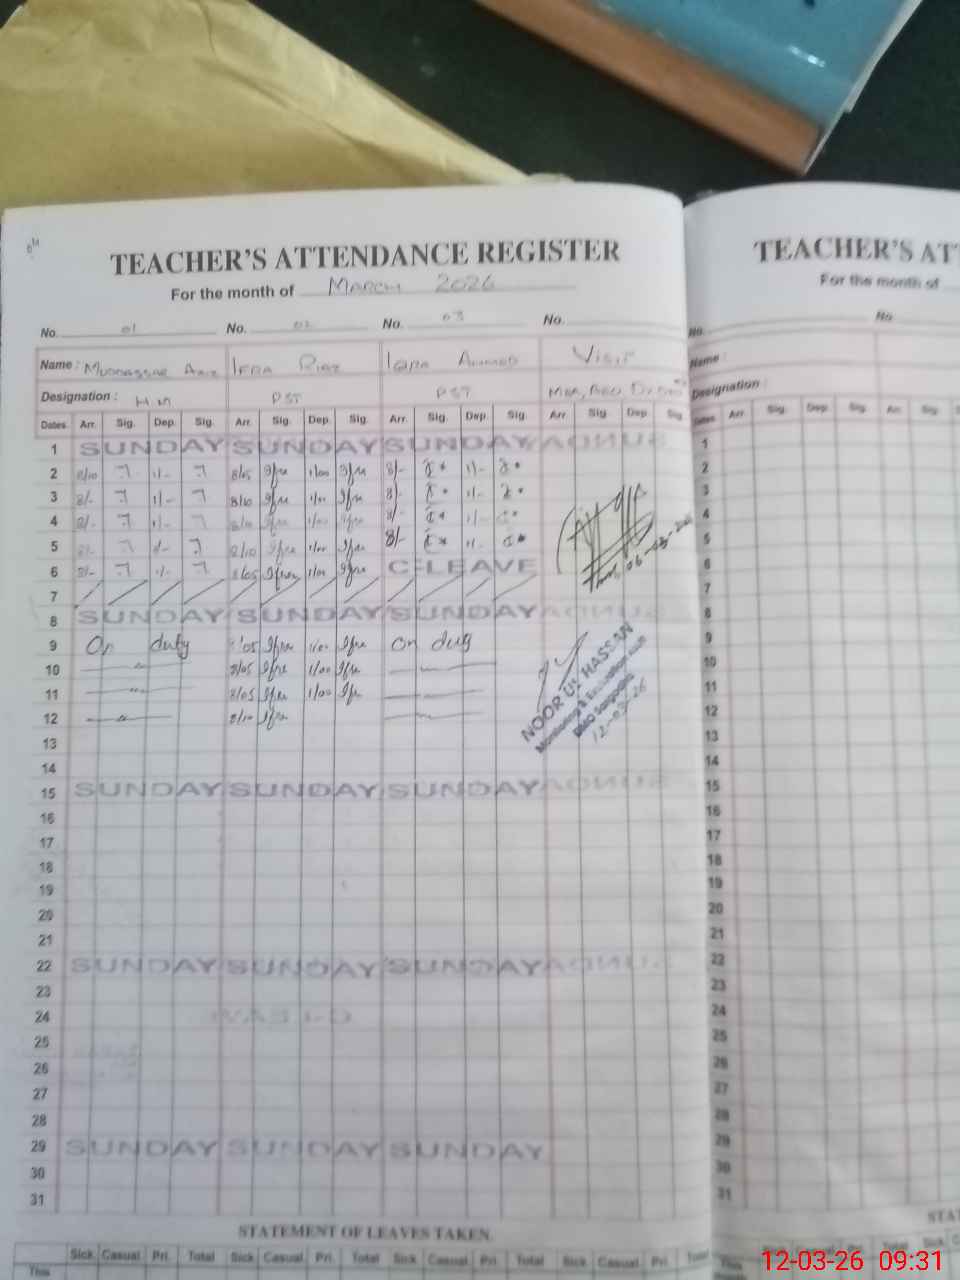 TEACHER'S ATTENDANCE REGISTER
For the month of March 2026
No. 01 No. 02 No. 03 No.
Name: Mudassar Aziz Ifra Riaz Iqra Ahmed Visit
Designation: H.M PST PST
Dates Arr. Sig. Dep. Sig. Arr. Sig. Dep. Sig. Arr. Sig. Dep. Sig. Arr. Sig. Dep. Sig.
1 SUNDAY SUNDAY SUNDAY
2 8/10 1/- 8/05 Ifra 1/00 Ifra 8/- 1/-
3 8/- 1/- 8/10 Ifra 1/00 Ifra 8/- 1/-
4 8/- 1/- 8/10 Ifra 1/00 Ifra 8/- 1/-
5 8/- 1/- 8/10 Ifra 1/00 Ifra 8/- 1/-
6 8/- 1/- 8/05 Ifra 1/00 Ifra C-LEAVE
7
8 SUNDAY SUNDAY SUNDAY
9 On duty Ifra 1/00 Ifra On duty
10 8/05 Ifra 1/00 Ifra
11 8/05 Ifra 1/00 Ifra
12 8/10 Ifra
NOOR UL HASSAN
12-03-26
13
14
15 SUNDAY SUNDAY SUNDAY
16
17
18
19
20
21
22 SUNDAY SUNDAY SUNDAY
23
24
25
26
27
28
29 SUNDAY SUNDAY SUNDAY
30
31
STATEMENT OF LEAVES TAKEN.
Sick Casual Pri. Total Sick Casual Pri. Total Sick Casual Pri. Total Sick Casual Pri. Total
This
TEACHER'S AT
For the month of
No. No
Name:
Designation:
Dates Arr. Sig. Dep. Sig. Arr. Sig.
1
2
3
4
5
6
7
8
9
10
11
12
13
14
15
16
17
18
19
20
21
22
23
24
25
26
27
28
29
30
31
STA
12-03-26 09:31